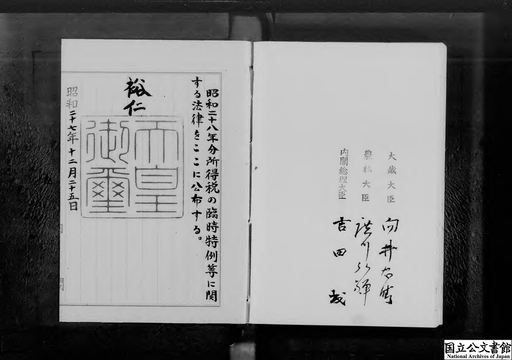 大蔵大臣 向井忠晴
農林大臣 廣川弘禅
内閣総理大臣 吉田茂
昭和二十八年分所得税の臨時特例等に関
する法律をここに公布する。
裕仁
天皇
御璽
昭和二十七年十二月二十五日
国立公文書館
National Archives of Japan